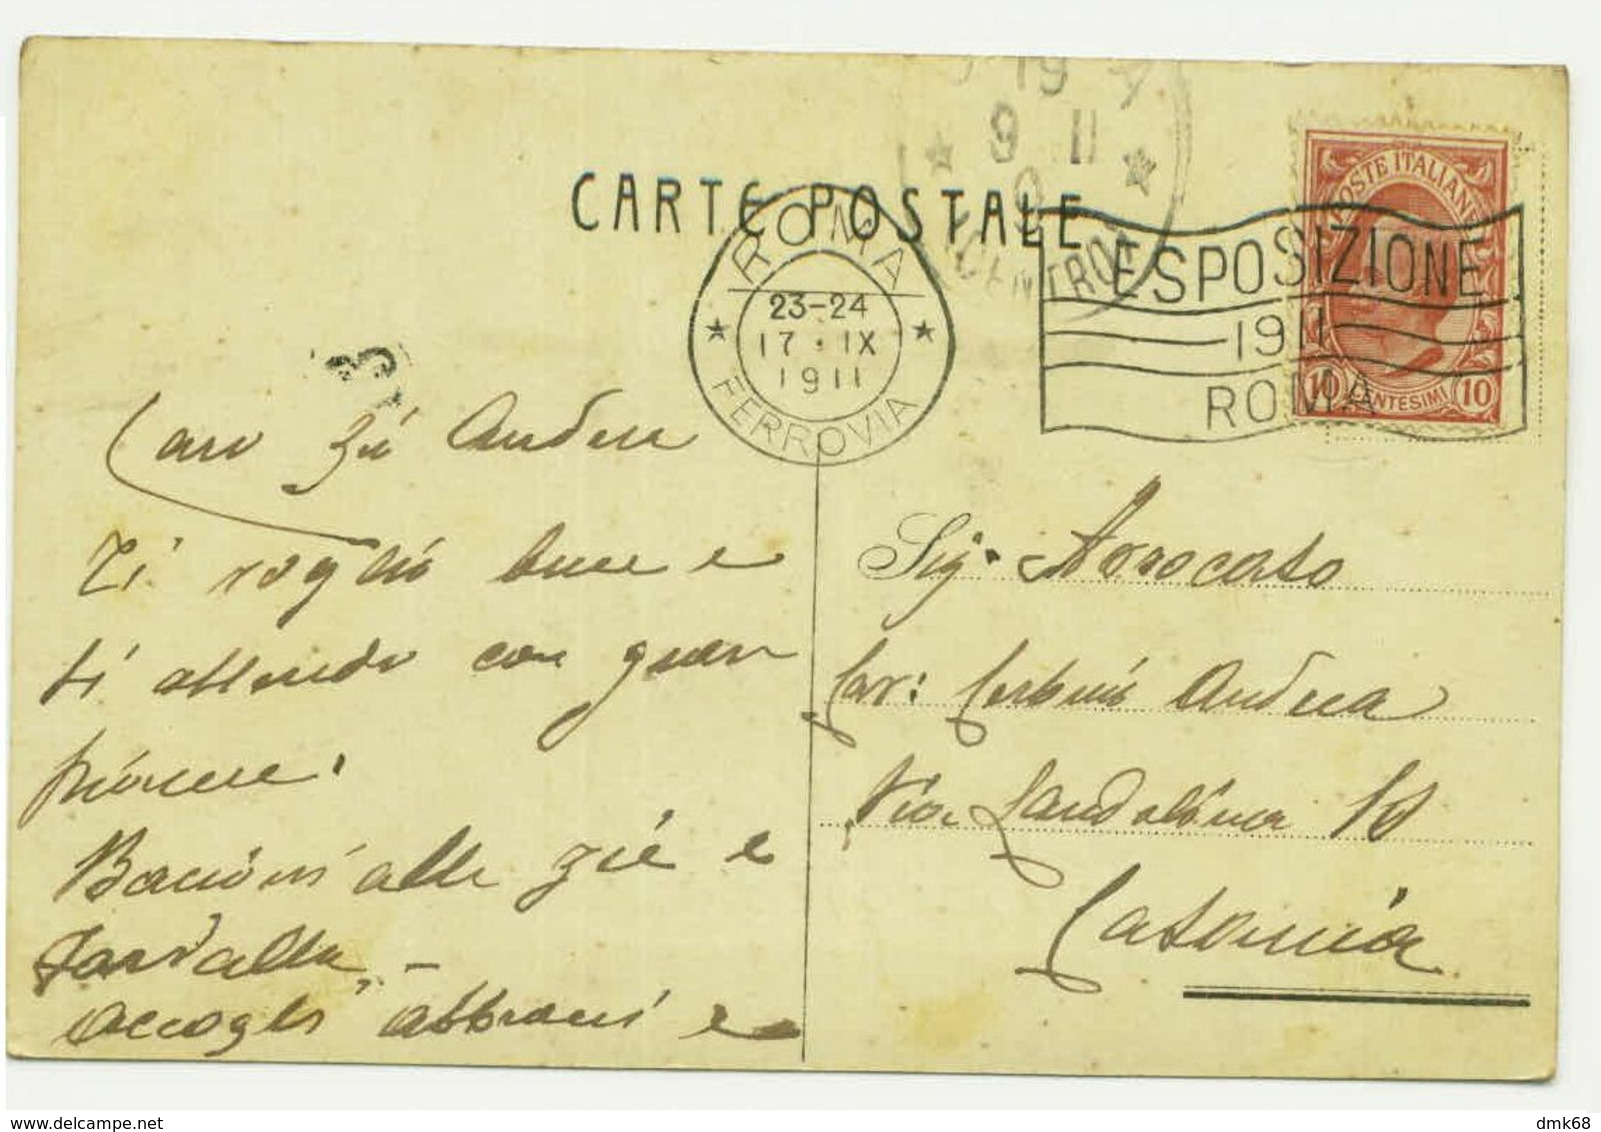 19
9 11
CENTRO
CARTE POSTALE
ROMA
23-24
17 · IX
1911
FERROVIA
ESPOSIZIONE
1911
ROMA
POSTE ITALIANE
10 CENTESIMI 10
Caro Zio Andrea
Ti voglio bene e
ti attendo con gran
piacere.
Bacioni alle zie e
accogli abbracci e
Sig. Avvocato
Cav: Andrea
Via Landolina
Catania
delcampe.net
dmk68